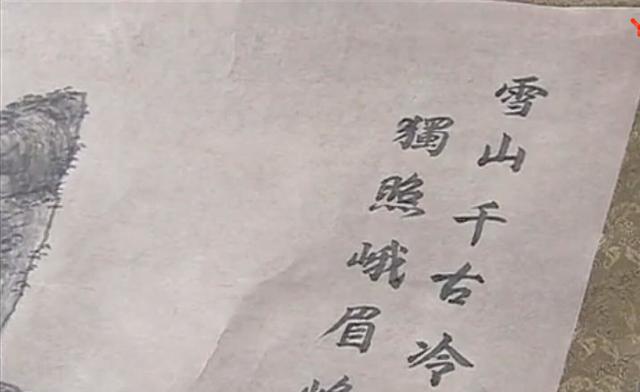 雪山千古冷
獨照峨眉